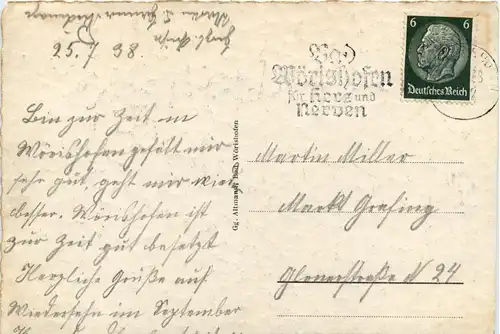 25.7 38.
Bin zur Zeit in
Wörishofen gefällt mir
sehr gut, geht mir viel
besser. Wörishofen ist
zur Zeit gut besetzt
Herzliche Grüße auf
Wiedersehn im September
Gg. Altmann, Bad Wörishofen
Bad
Wörishofen
für Herz und
Nerven
6 6
Deutsches Reich
Martin Miller
Markt Grafing
Glonerstraße N 24